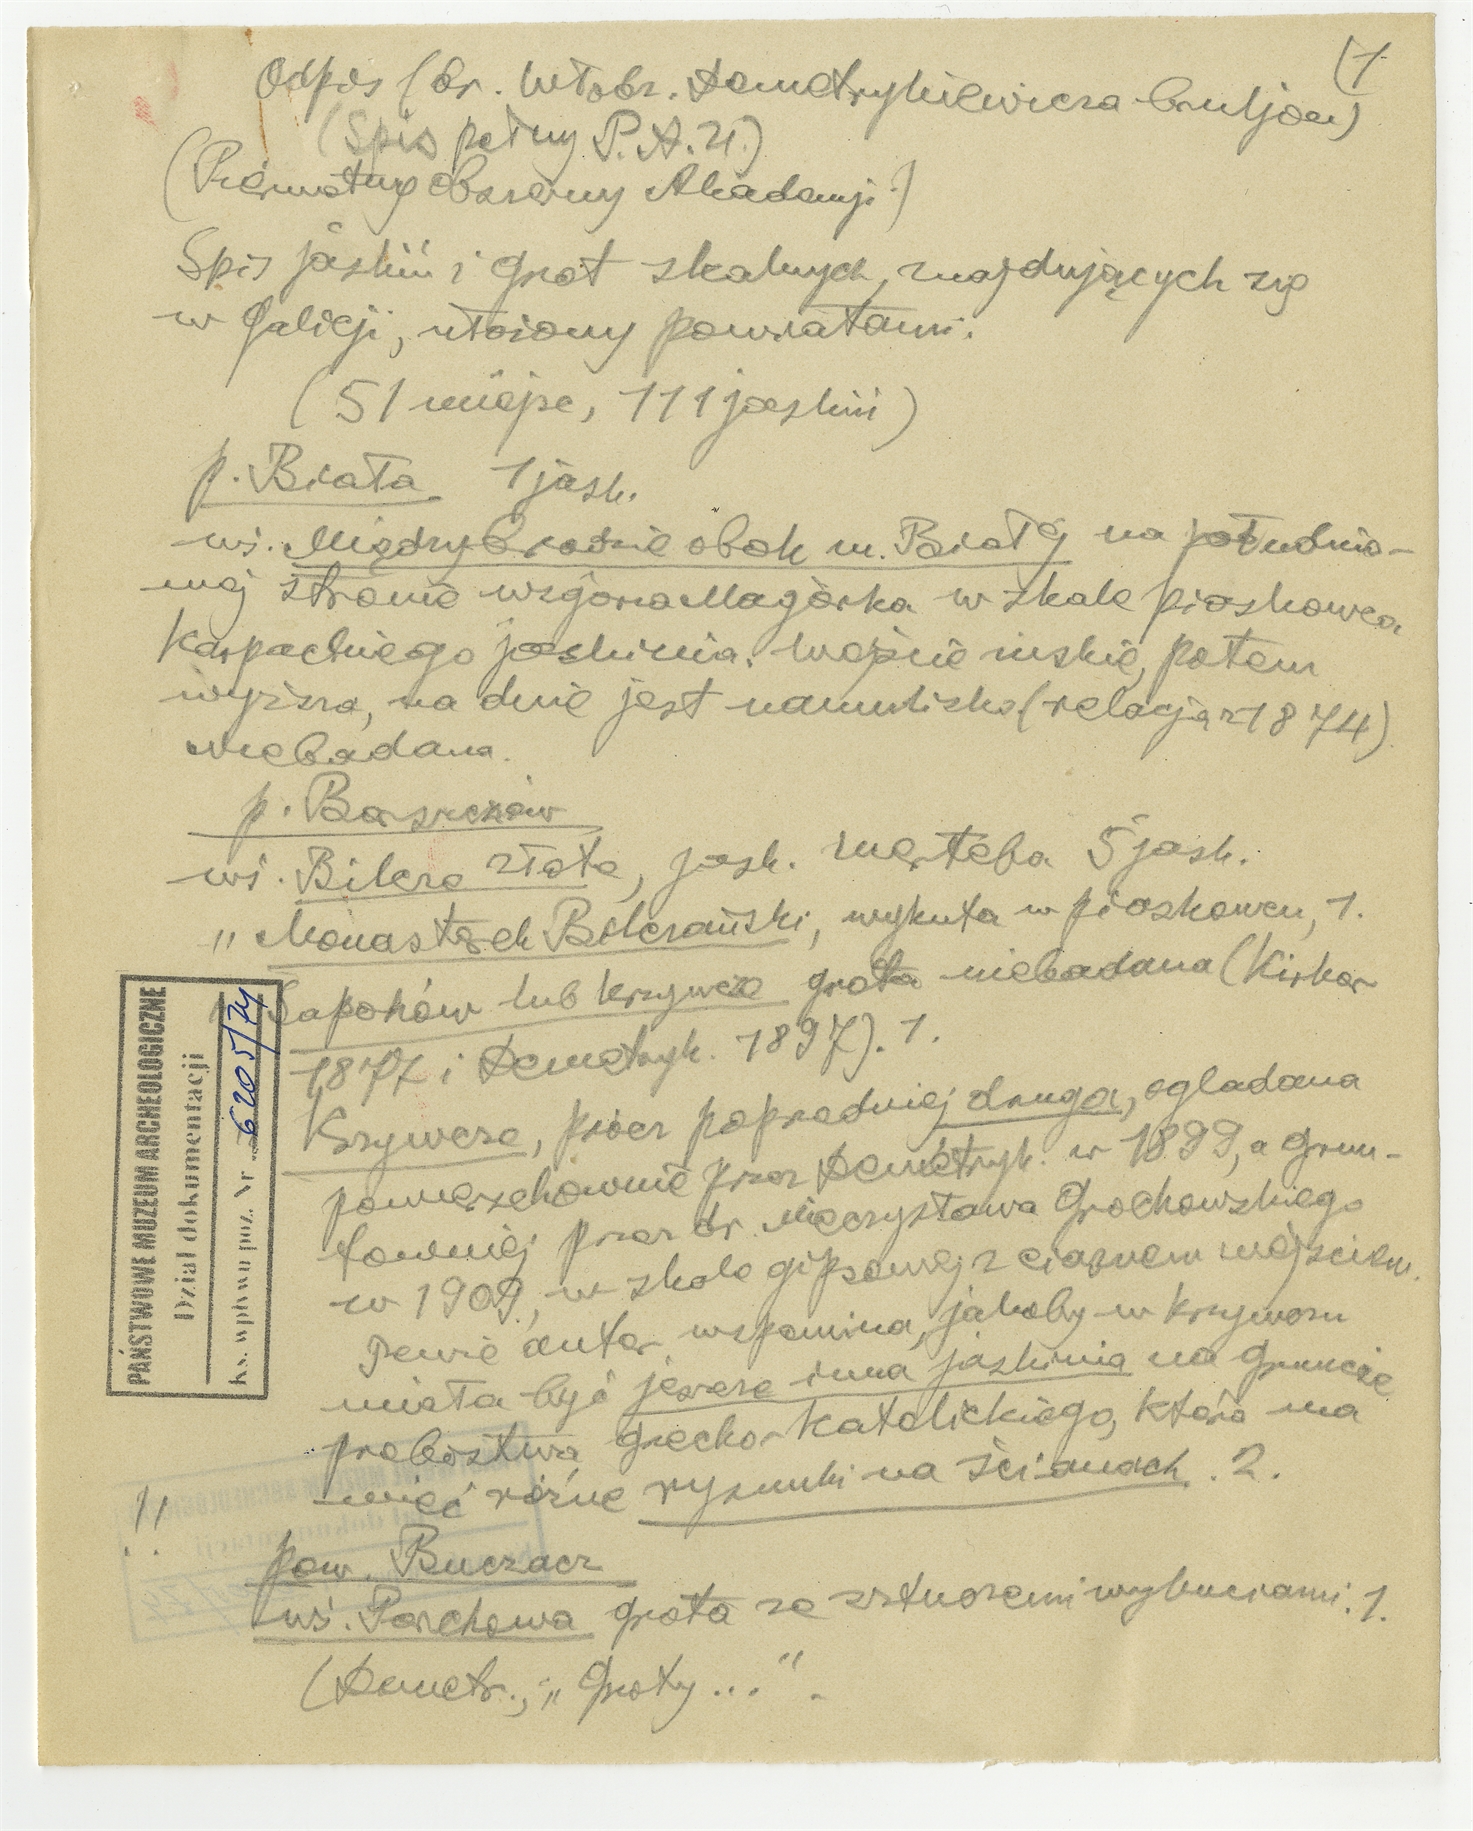 (1
Odpis (Dr. Włodz. Demetrykiewicza bruljon)
(Spis pełny P.A.U.)
(Pierwotny obszerny Akademji)
Spis jaskiń i grot skalnych, znajdujących się
w Galicji, ułożony powiatami.
(51 miejsc, 111 jaskiń)
p. Biała 1 jask.
wś. Międzybrodzie obok m. Białej na południo-
wej stronie wzgórza Magórka w skale piaskowca
Karpackiego jaskinia. Wejście niskie, potem
wyższa, na dnie jest namulisko (relacja z 1874)
niebadana.
p. Borszczów
wś. Bilcze złote, jask. Werteba 5 jask.
„ Monasterek Bilczański, wykuta w piaskowcu, 1.
„ Sapohów lub Krzywcze grota niebadana (Kirkor
1877 i Demetryk. 1897). 1.
Krzywcze, prócz poprzedniej druga, oglądana
powierzchownie przez Demetryk. w 1899, a grun-
towniej przez dr. Mieczysława Grochowskiego
w 1909, w skale gipsowej z ciasnem wejściem.
Tenże autor wspomina, jakoby w Krzywczu
miała być jeszcze inna jaskinia na gruncie
probostwa grecko-katolickiego, która ma
mieć różne rysunki na ścianach. 2.
!!
pow. Buczacz
wś. Porchowa grota ze sztucznemi wykuciami. 1.
(Demetr., „Groty ...".
PAŃSTWOWE MUZEUM ARCHEOLOGICZNE
Dział dokumentacji
ks. wpływu poz. Nr 6205/74